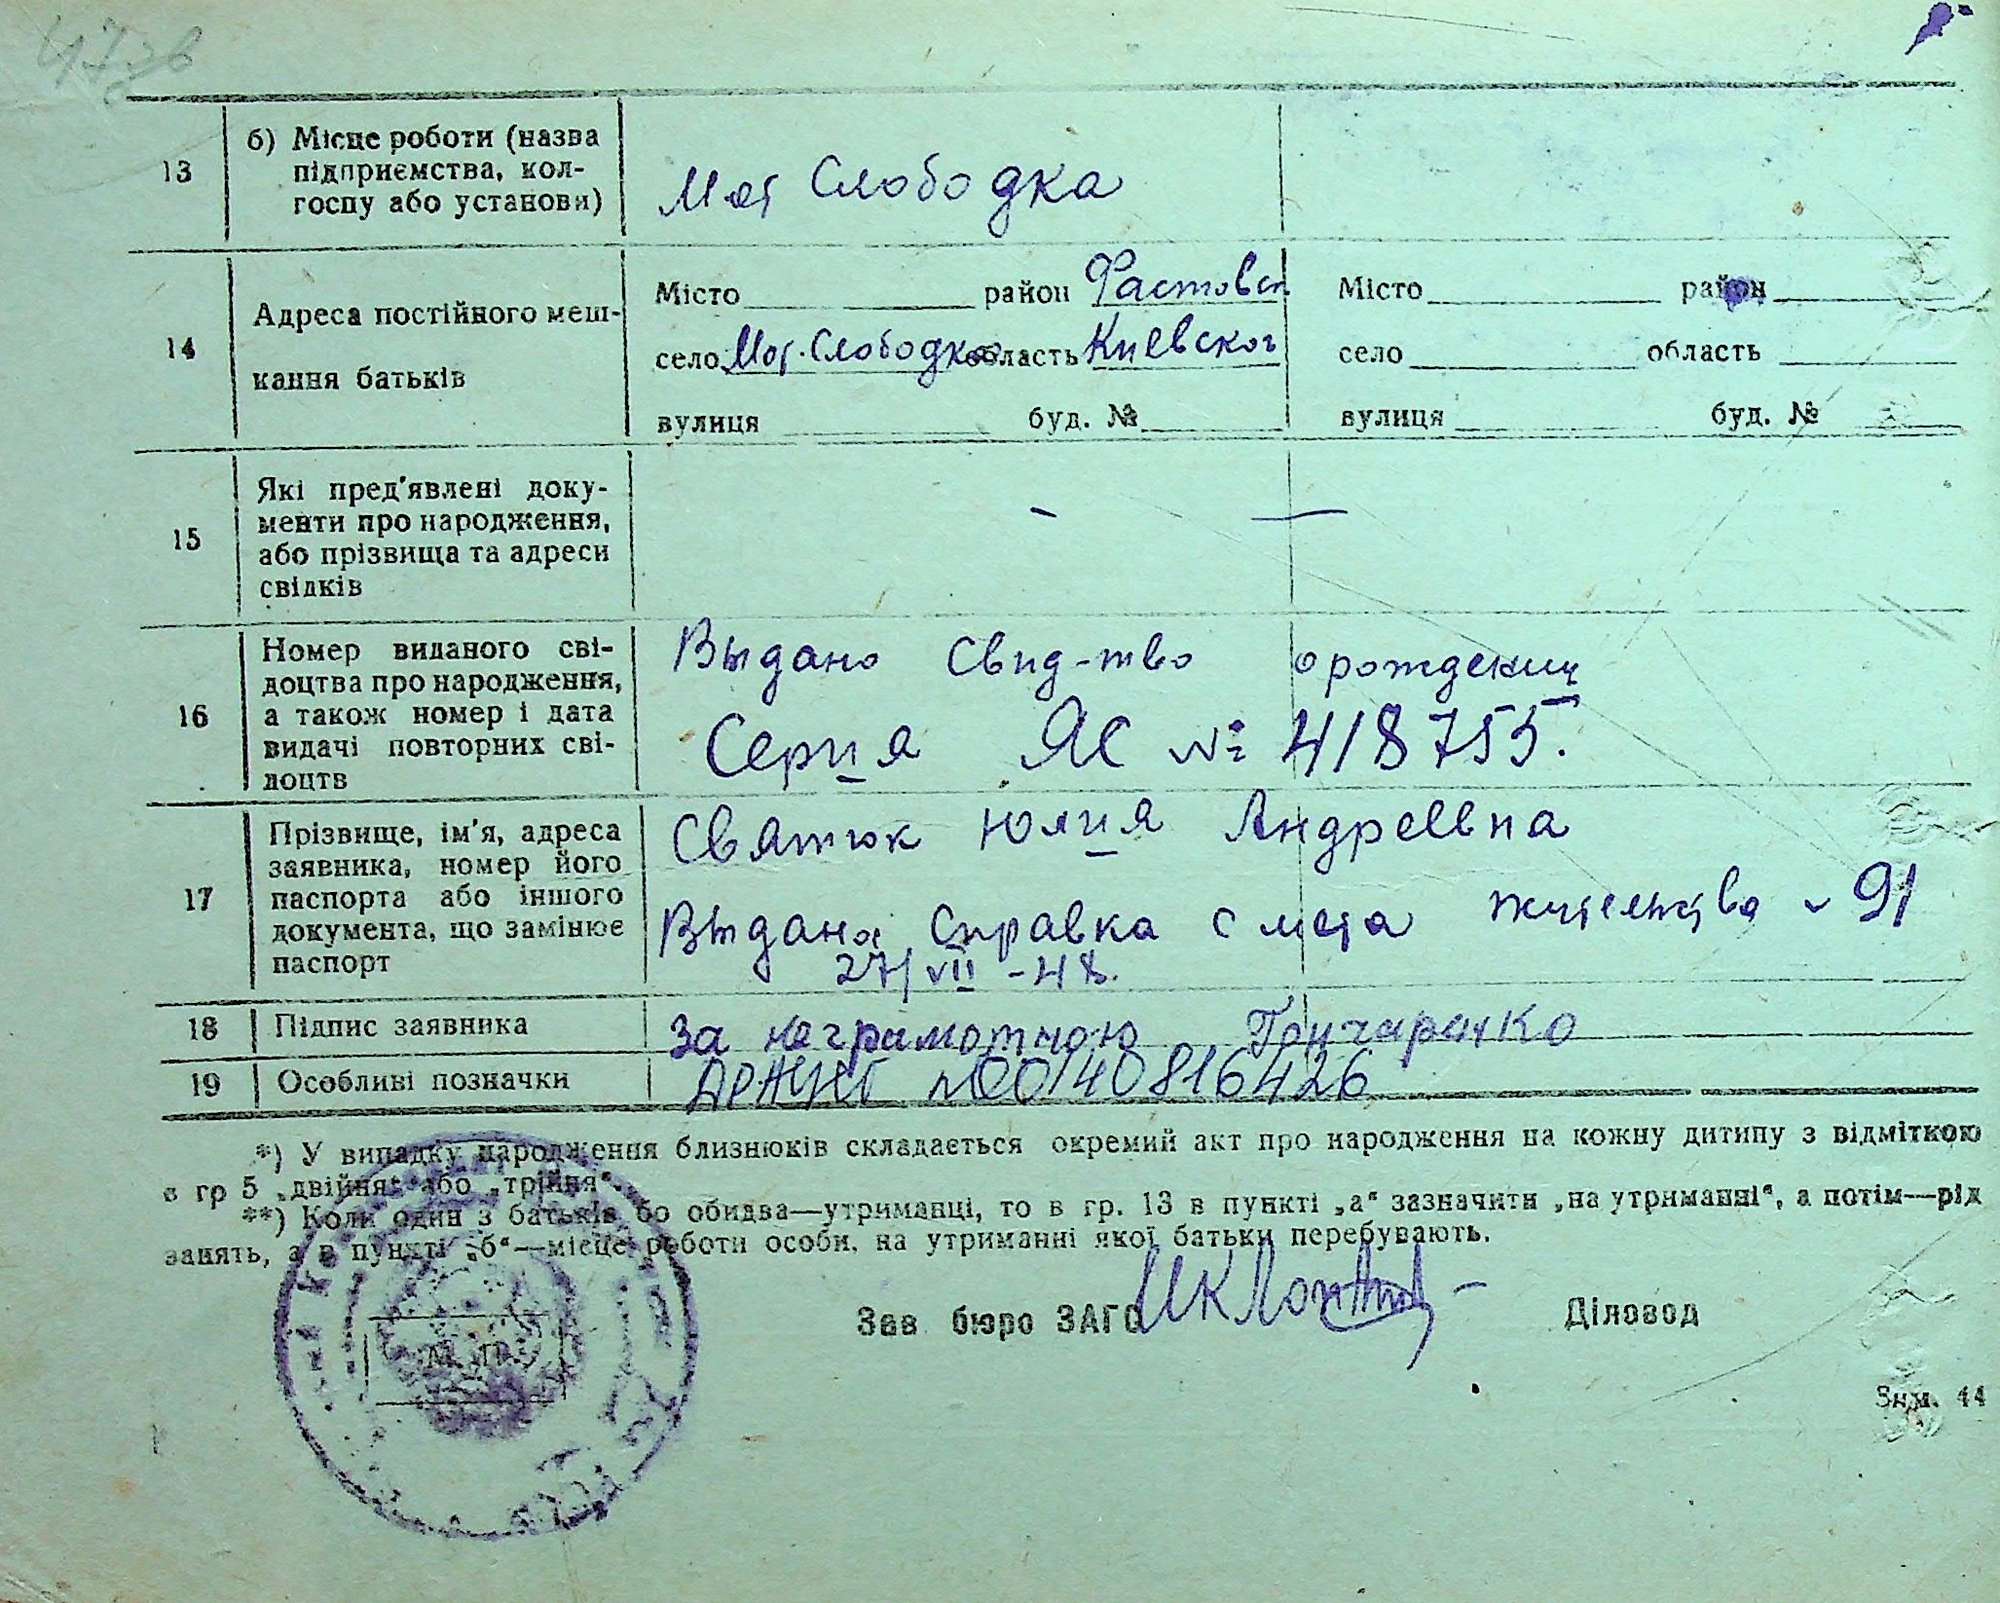 13
б) Місце роботи (назва
підприємства, кол-
госпу або установи)
Мот Слободка
14
Адреса постійного меш-
кання батьків
Місто район Фастовск
село Мот. Слободка область Киевског
вулиця буд. №
Місто район
село область
вулиця буд. №
15
Які пред'явлені доку-
менти про народження,
або прізвища та адреси
свідків
— —
16
Номер виданого сві-
доцтва про народження,
а також номер і дата
видачі повторних сві-
доцтв
Выдано Свид-тво о рождении
Серия ЯС № 418755.
17
Прізвище, ім'я, адреса
заявника, номер його
паспорта або іншого
документа, що замінює
паспорт
Святюк Юлия Андреевна
Выдана справка с места жительства № 91
27/VII - 48.
18 Підпис заявника
За неграмотною Гончаренко
19 Особливі позначки
ДРАЦНГ №00140816426
*) У випадку народження близнюків складається окремий акт про народження на кожну дитину з відміткою
в гр 5 „двійня" або „трійня".
**) Коли один з батьків бо обидва—утриманці, то в гр. 13 в пункті „а" зазначити „на утриманні", а потім—рід
занять, а в пункті „б"—місце роботи особи, на утриманні якої батьки перебувають.
Зав бюро ЗАГС
Діловод
М. П.
Знм. 44